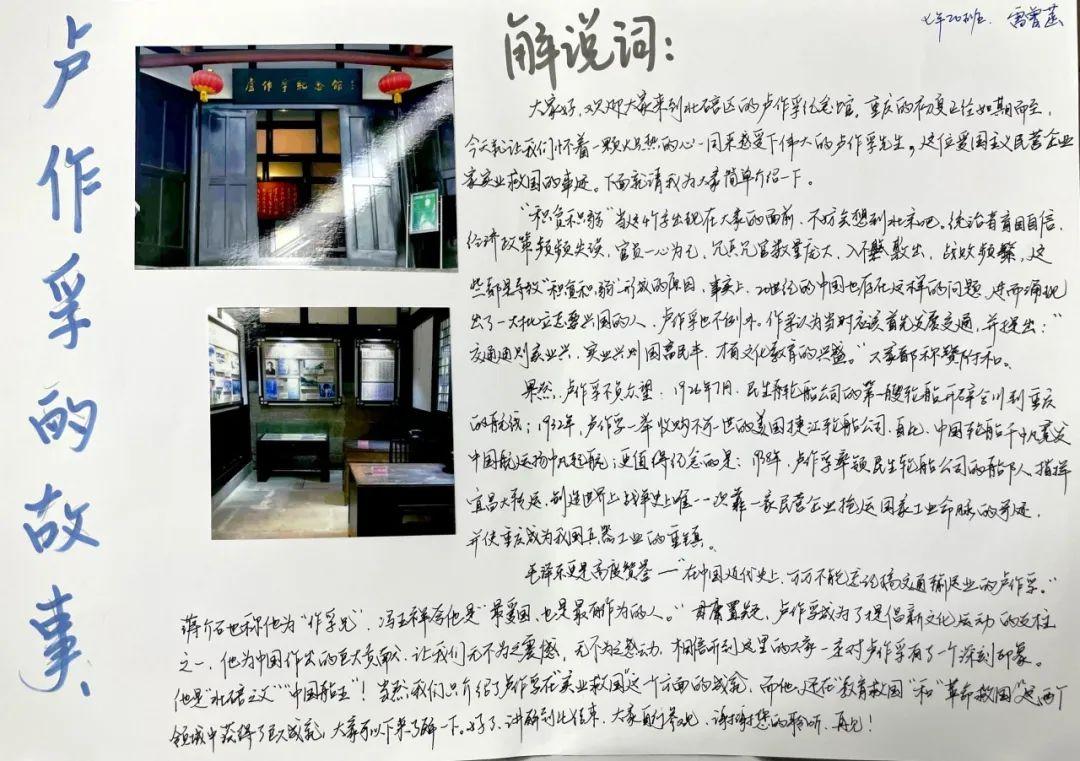 卢作孚的故事
解说词：
七年20班
卢作孚纪念馆
大家好，欢迎大家来到北碚区的卢作孚纪念馆。重庆的初夏正值如期而至，
今天就让我们怀着一颗火热的心一同来感受下伟大的卢作孚先生，这位爱国主义民营企业
家实业救国的事迹。下面就请我为大家简单介绍一下。
“积贫积弱”当这4个字出现在大家的面前，不妨会想到北宋吧。统治者盲目自信，
经济政策频频失误，官员一心为己，冗兵冗官数量庞大，入不敷出，战败频繁，这
些都是导致“积贫积弱”形成的原因，事实上，20世纪的中国也存在这样的问题，进而涌现
出了一大批立志要兴国的人，卢作孚也不例外。作孚认为当时应该首先发展交通，并提出：“
交通通则实业兴，实业兴则国富民丰，才有文化教育的兴盛。”大家都称赞附和。
果然，卢作孚不负众望，1926年7月，民生轮船公司的第一艘轮船开辟合川到重庆
的航线；1932年，卢作孚一举收购不可一世的美国捷江轮船公司，自此，中国轮船千帆竞发
中国航运扬帆起航；更值得纪念的是：1938年，卢作孚率领民生轮船公司的船队人，指挥
宜昌大转运，创造世界上战争史上唯一一次靠一家民营企业抢运国家工业命脉的奇迹，
并使重庆成为我国兵器工业的重镇。
毛泽东更是高度赞誉——“在中国近代史上，万万不能忘记搞交通输运业的卢作孚。”
蒋介石也称他为“作孚兄”，冯玉祥夸他是“最爱国，也是最有作为的人。”毋庸置疑，卢作孚成为了提倡新文化运动的支柱
之一，他为中国作出的巨大贡献，让我们无不为之震憾，无不为之感动，相信听到这里的大家一定对卢作孚有了一个深刻印象。
他是“北碚之父”“中国船王”！当然我们只介绍了卢作孚在“实业救国”这个方面的成就，而他还在“教育救国”和“革命救国”这两个
领域中获得了巨大成就，大家可以下来了解一下。好了，讲解到此结束，大家自行参观，谢谢您的聆听，再见！